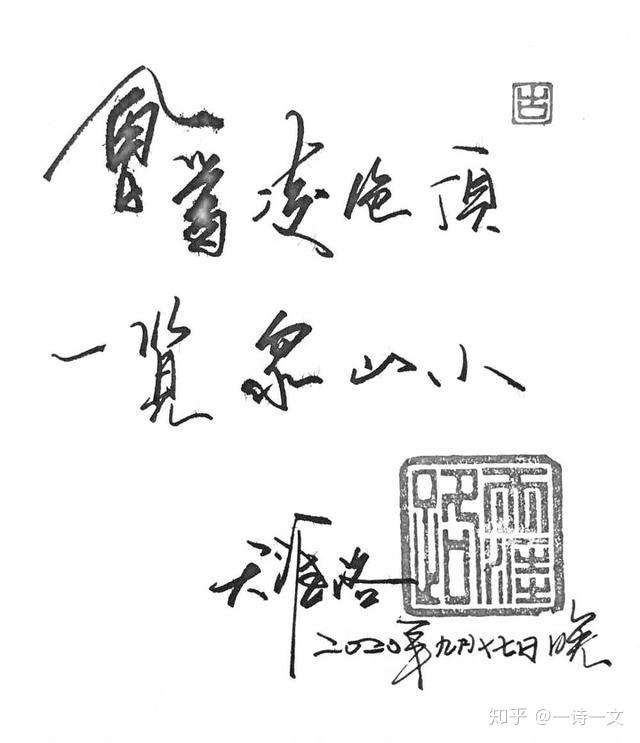 會當凌绝頂
一覽眾山小
天涯路
2020年九月十七日晚
知乎 @一诗一文